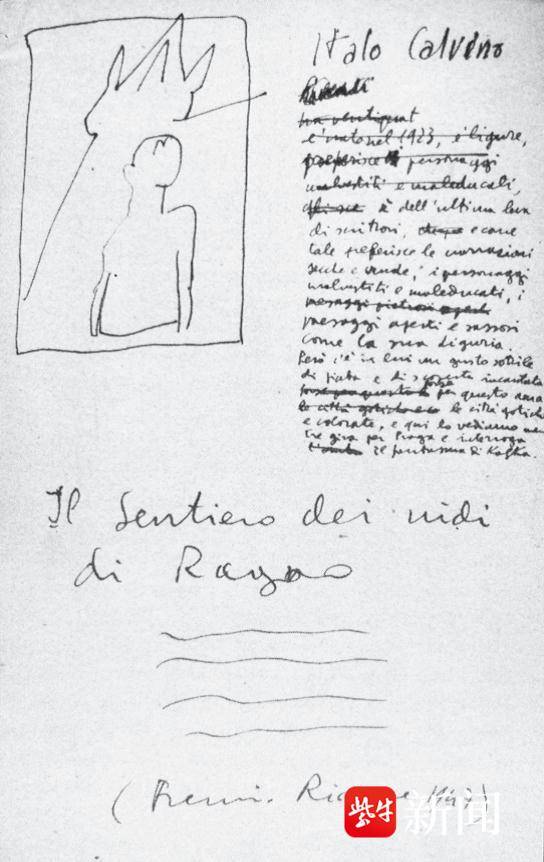 Italo Calvino
ha ventiquat
è nato nel 1923, è ligure,
preferisce personaggi
malvestiti e maleducati,
è dell'ultima leva
di scrittori, e come
tale preferisce le narrazioni
secche e crude, i personaggi
malvestiti e maleducati, i
paesaggi pietrosi aperti
paesaggi aperti e sassosi
come la sua Liguria.
Però c'è in lui un gusto sottile
di fiaba e di scoperta incantata
forse per questo ama
le città gotiche e le città gotiche
e colorate, e qui lo vediamo men
tre gira per Praga e interroga
il fantasma di Kafka.
Il Sentiero dei nidi
di Ragno
(Premi.
紫牛 新闻